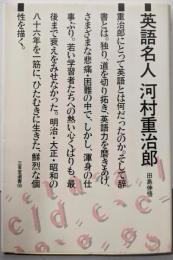 ■英語名人 河村重治郎
田島伸悟
■重治郎にとって英語とは何だったのか、そして辞
書とは。独り、道を切り拓き、英語力を磨きあげ、
さまざまな悲痛・困難の中で、しかし、渾身の仕
事ぶり。若い学習者たちへの熱い心くばりも、最
後まで衰えをみせなかった。明治・大正・昭和の
八十六年を一筋に、ひたむきに生きた、鮮烈な個
■性を描く。
三省堂選書